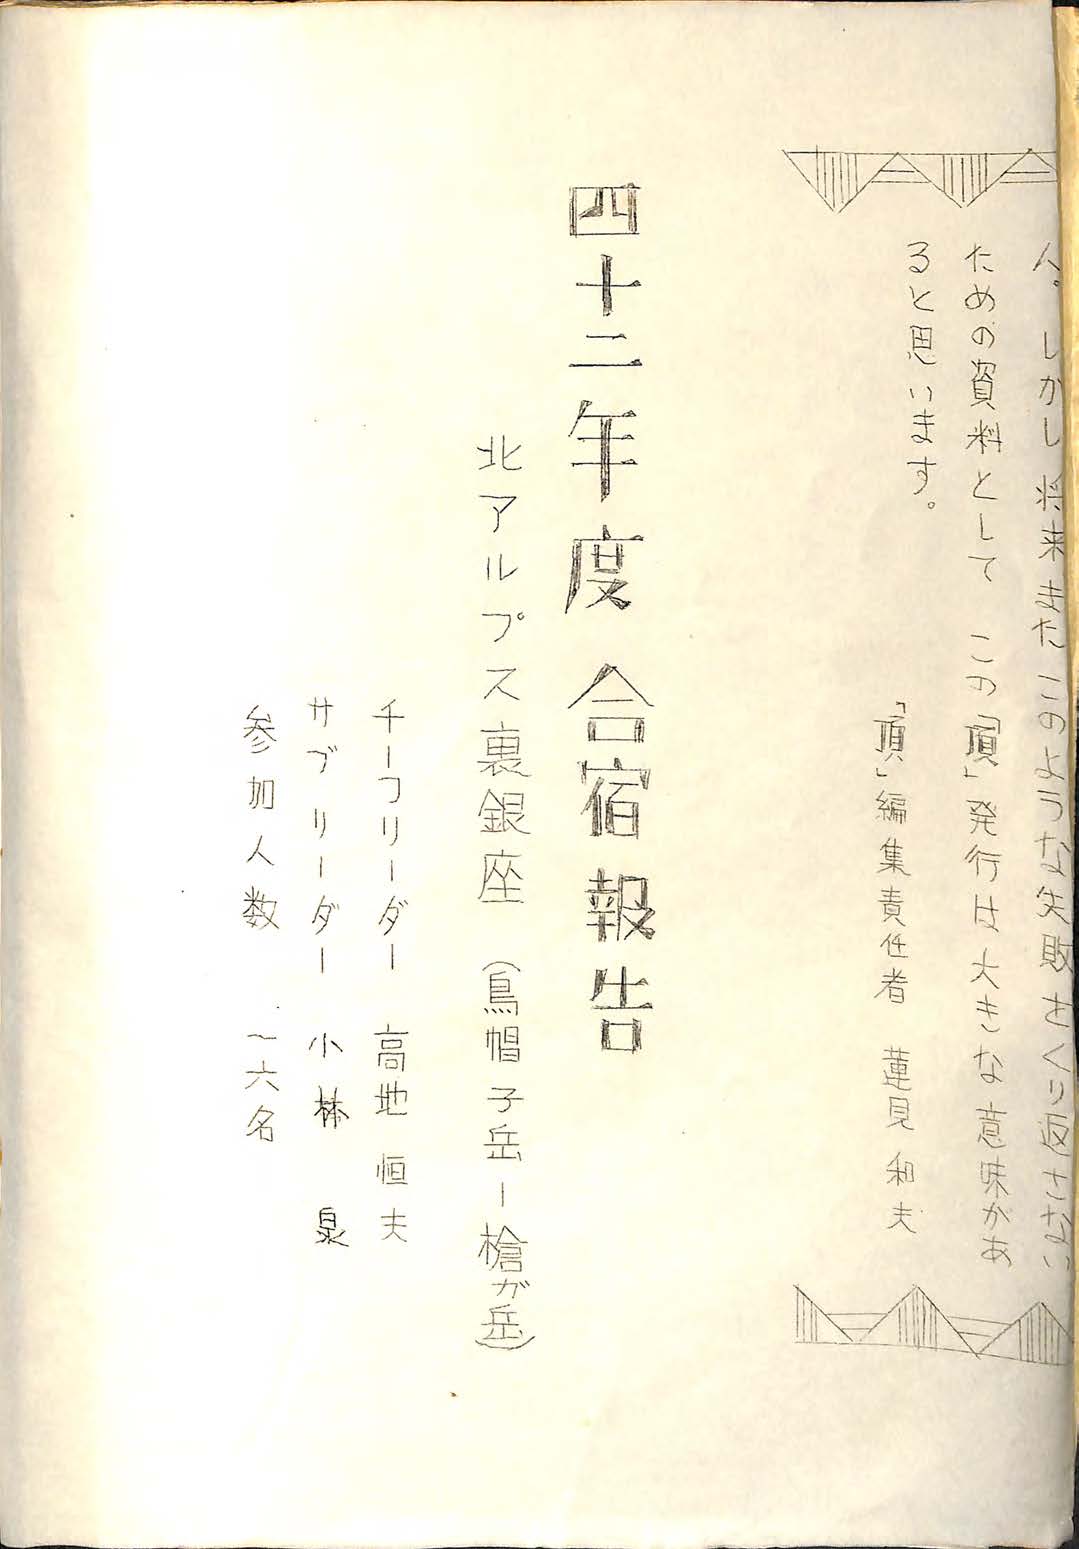 ん。しかし将来またこのような失敗をくり返さない
ための資料として この「頂」発行は大きな意味があ
ると思います。
「頂」編集責任者 蓮見和夫
四十二年度 合宿報告
北アルプス裏銀座 (烏帽子岳ー槍が岳)
チーフリーダー 高地恒夫
サブリーダー 小林 泉
参加人数 一六名